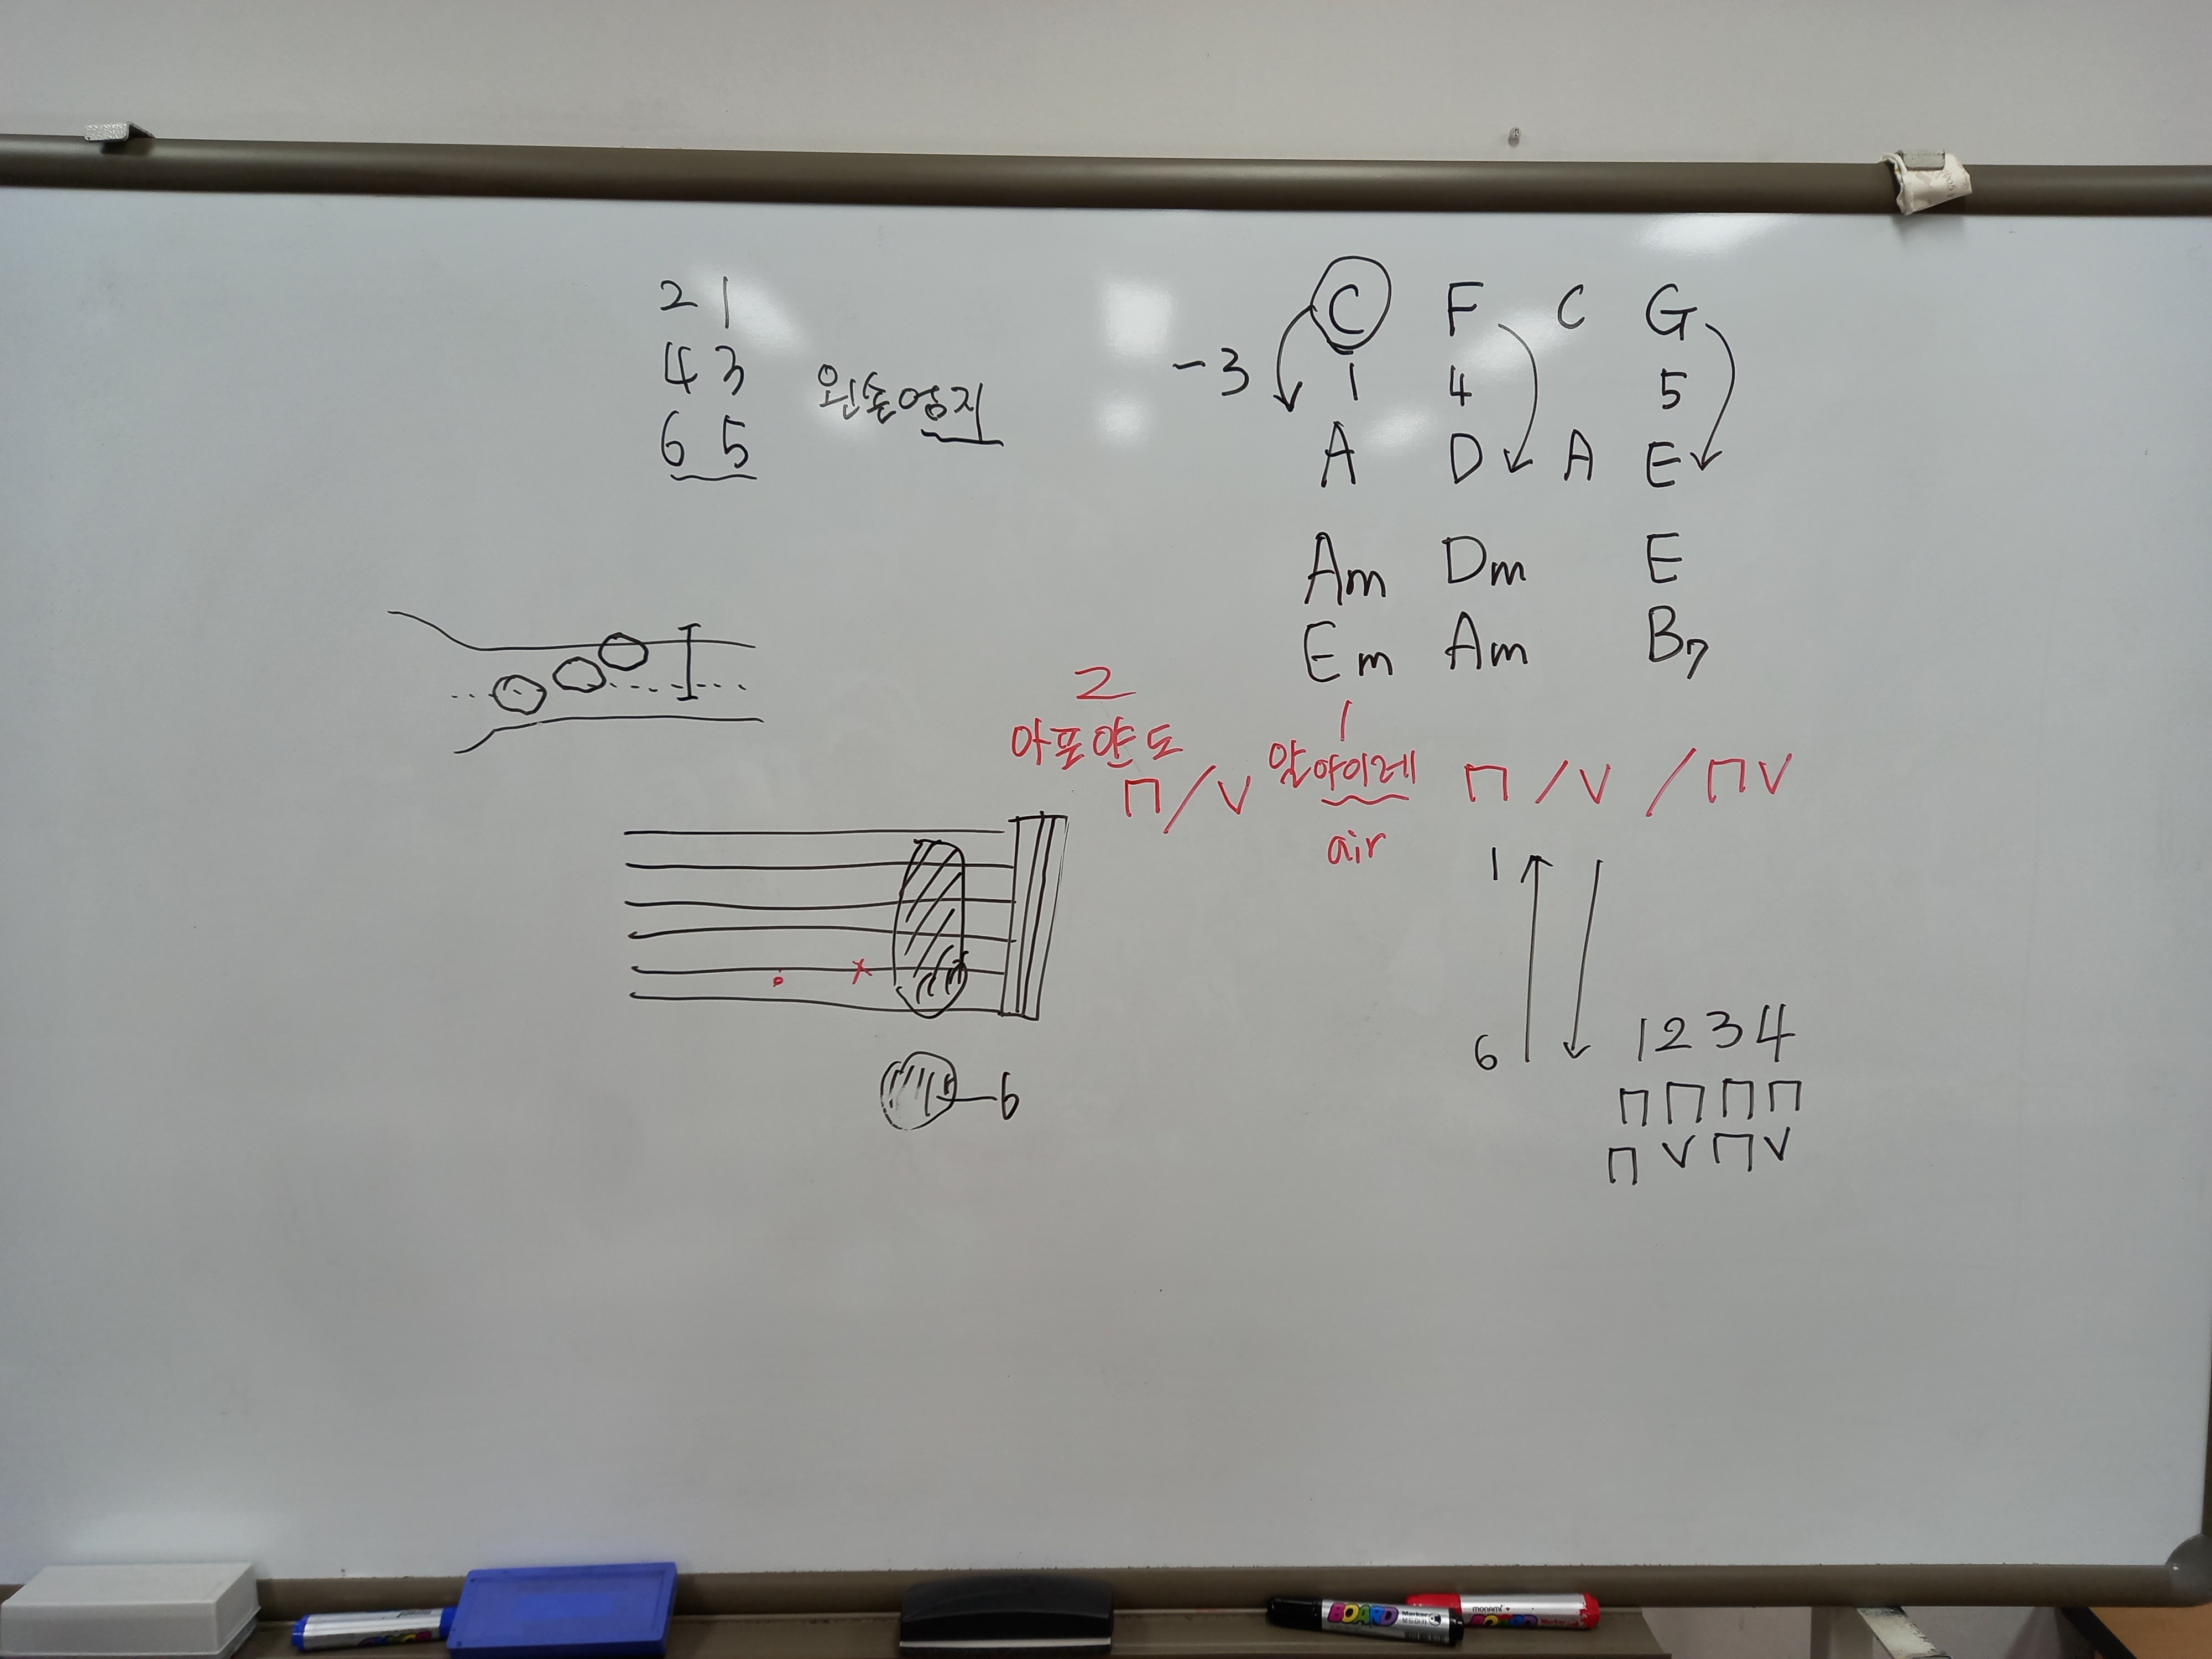 2 1
4 3
6 5
왼손엄지
C F C G
-3
1 4 5
A D A E
Am Dm E
Em Am B7
2
아포얀도
⊓/V
1
알아이레
air
⊓/V/⊓V
1
6
6
1234
⊓⊓⊓⊓
⊓V⊓V
BOARD Marker
monami
BOARD